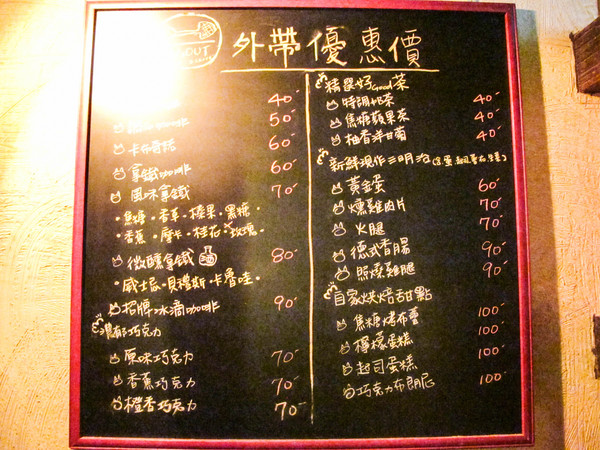 OUT
外帶優惠價
40
咖啡 50
卡布奇諾 60
拿鐵咖啡 60
風味拿鐵 70
·焦糖·香草·榛果·黑糖·
·香蕉·摩卡·桂花·玫瑰·
微醺拿鐵 酒 80
威士忌·貝禮斯·卡魯哇·
招牌冰滴咖啡 90
巧克力
原味巧克力 70
香蕉巧克力 70
橙香巧克力 70
精選好Good茶
特調奶茶 40
焦糖蘋果茶 40
柚香洋甘菊 40
新鮮現作三明治
黃金蛋 60
燻雞肉片 70
火腿 70
德式香腸 90
照燒雞腿 90
自家烘焙甜點
焦糖烤布蕾 100
檸檬蛋糕 100
起司蛋糕 100
巧克力布朗尼 100